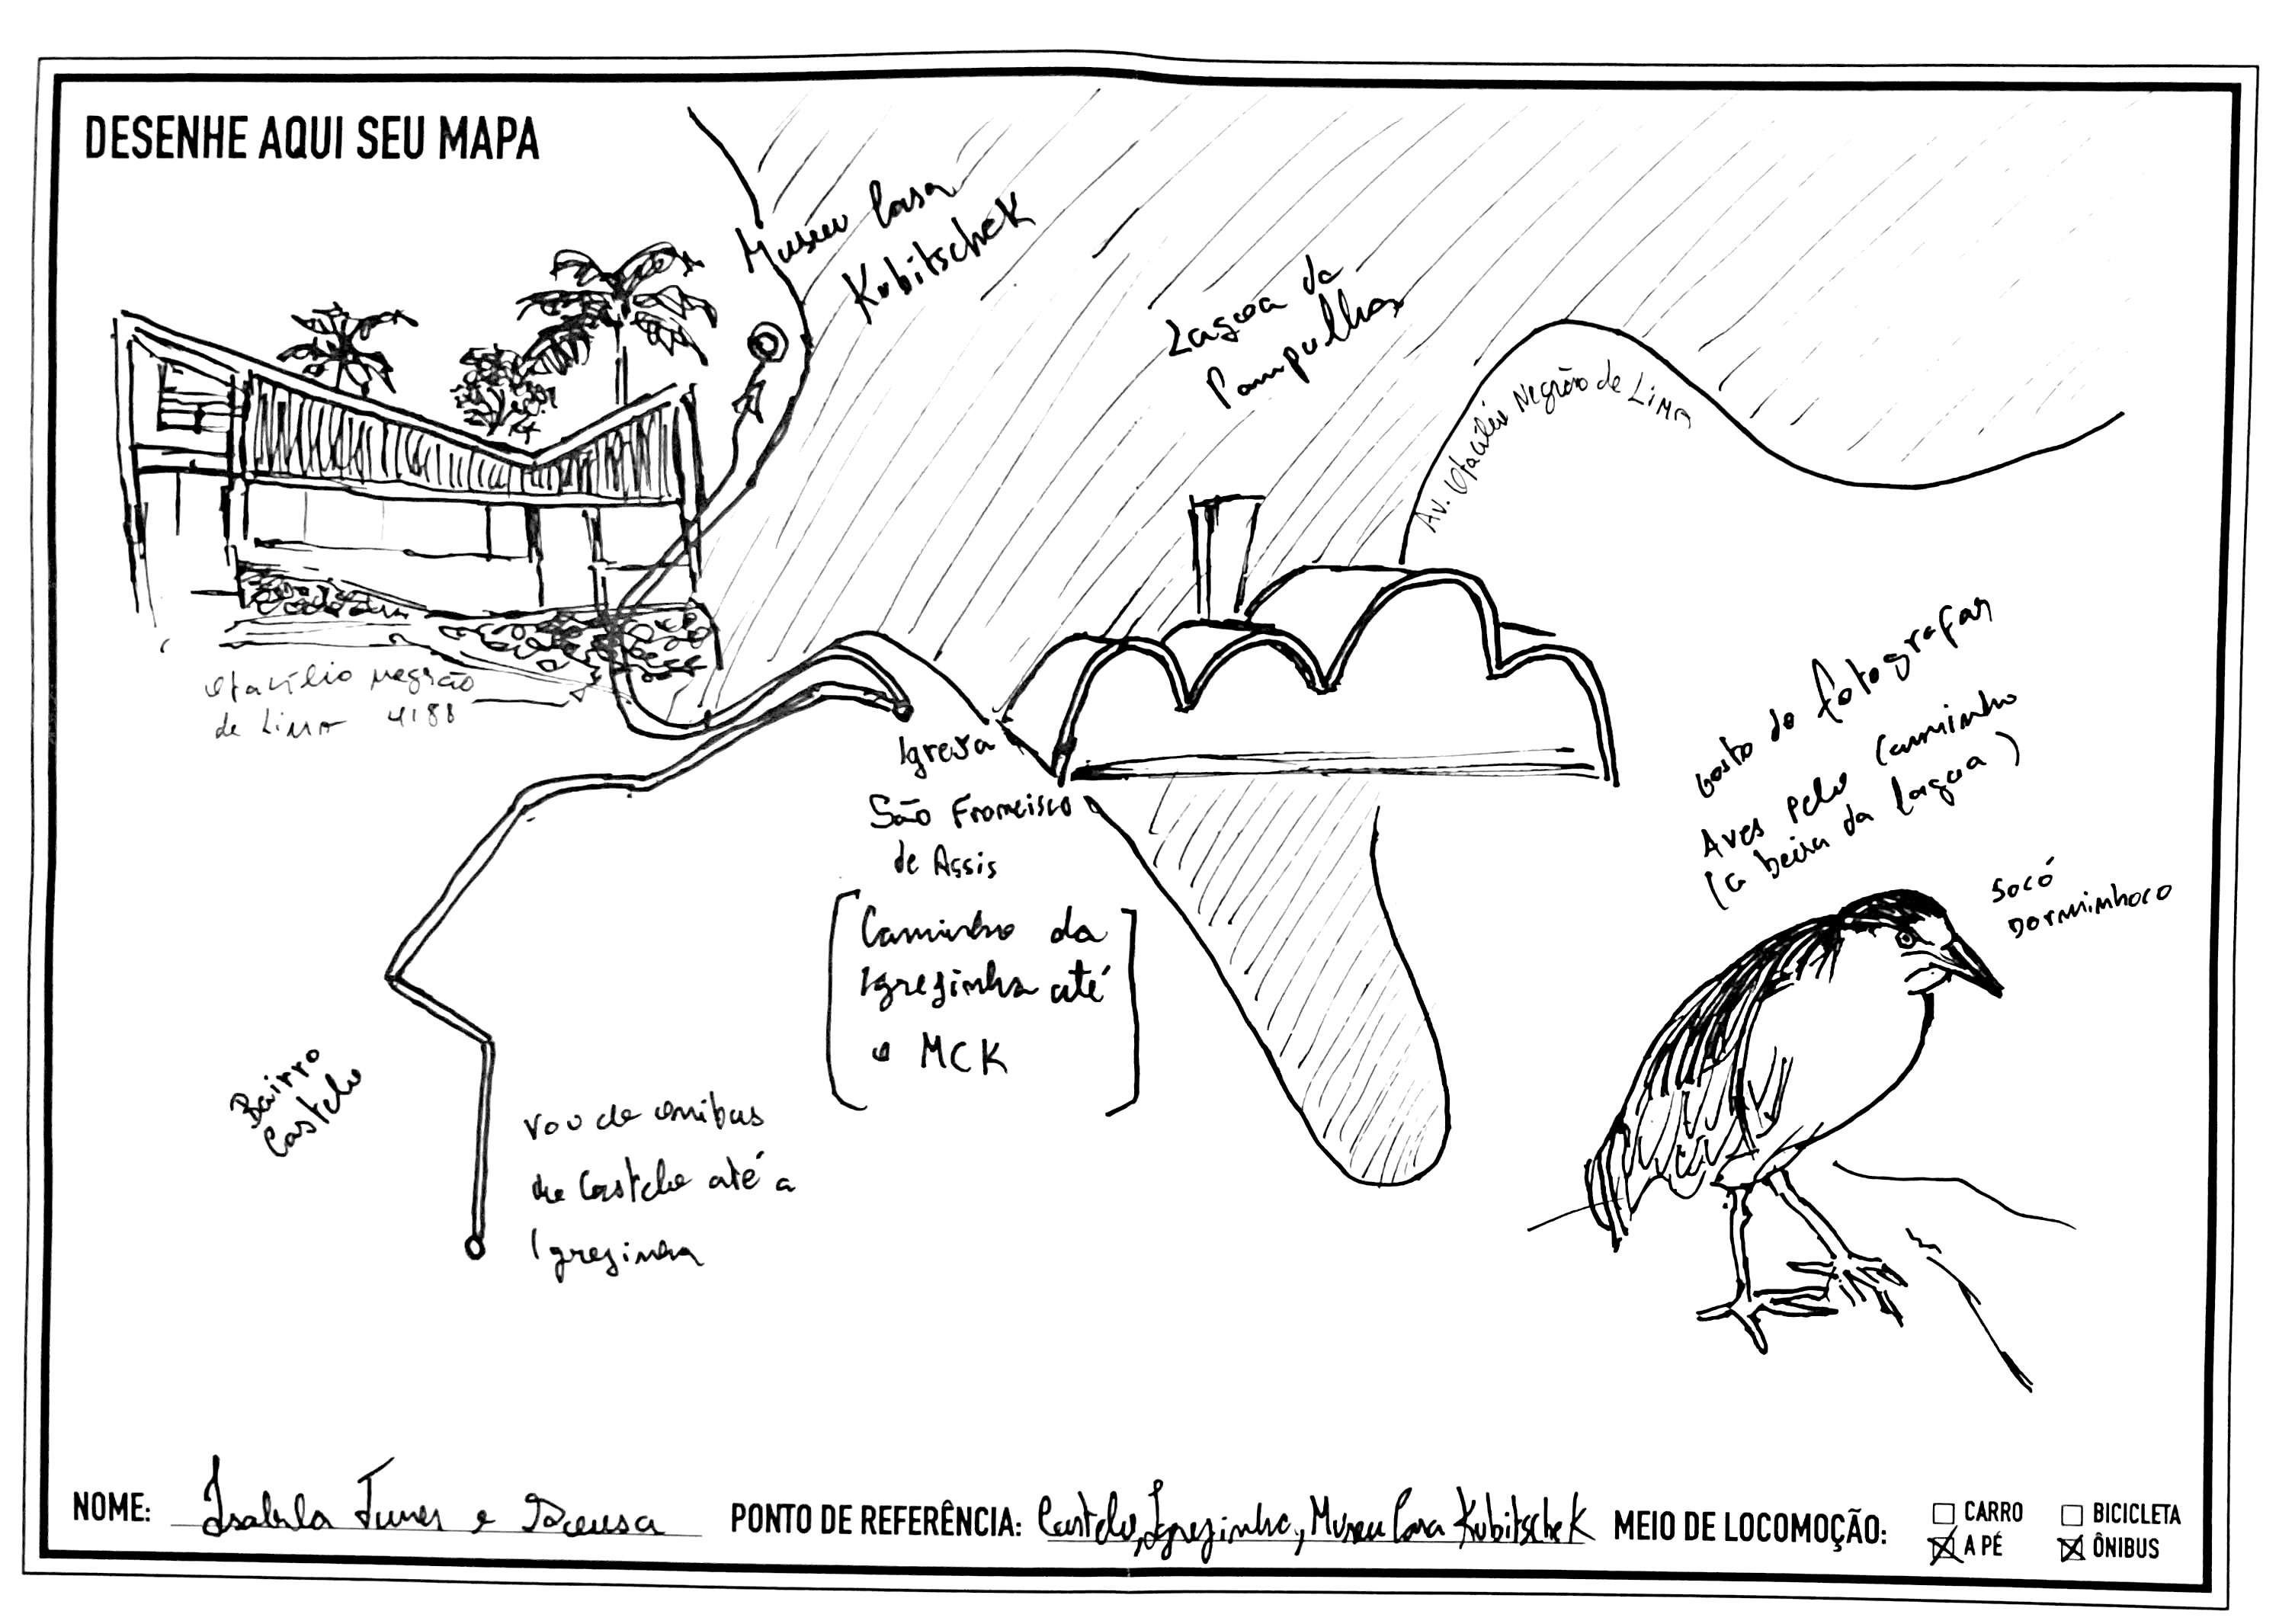 DESENHE AQUI SEU MAPA
Museu Casa
Kubitschek
Lagoa da
Pampulha
Av. Otacílio Negrão de Lima
Otacílio Negrão
de Lima 4188
Igreja
São Francisco
de Assis
Caminho da
Igrejinha até
o MCK
Gosto de fotografar
Aves pelo caminho
(a beira da lagoa)
Socó
Dorminhoco
Bairro
Castelo
Vou de onibus
do Castelo até a
Igrejinha
NOME: Isabela Tunes e
PONTO DE REFERÊNCIA: Castelo, Igrejinha, Museu Casa Kubitschek
MEIO DE LOCOMOÇÃO:
CARRO
BICICLETA
A PÉ
ÔNIBUS